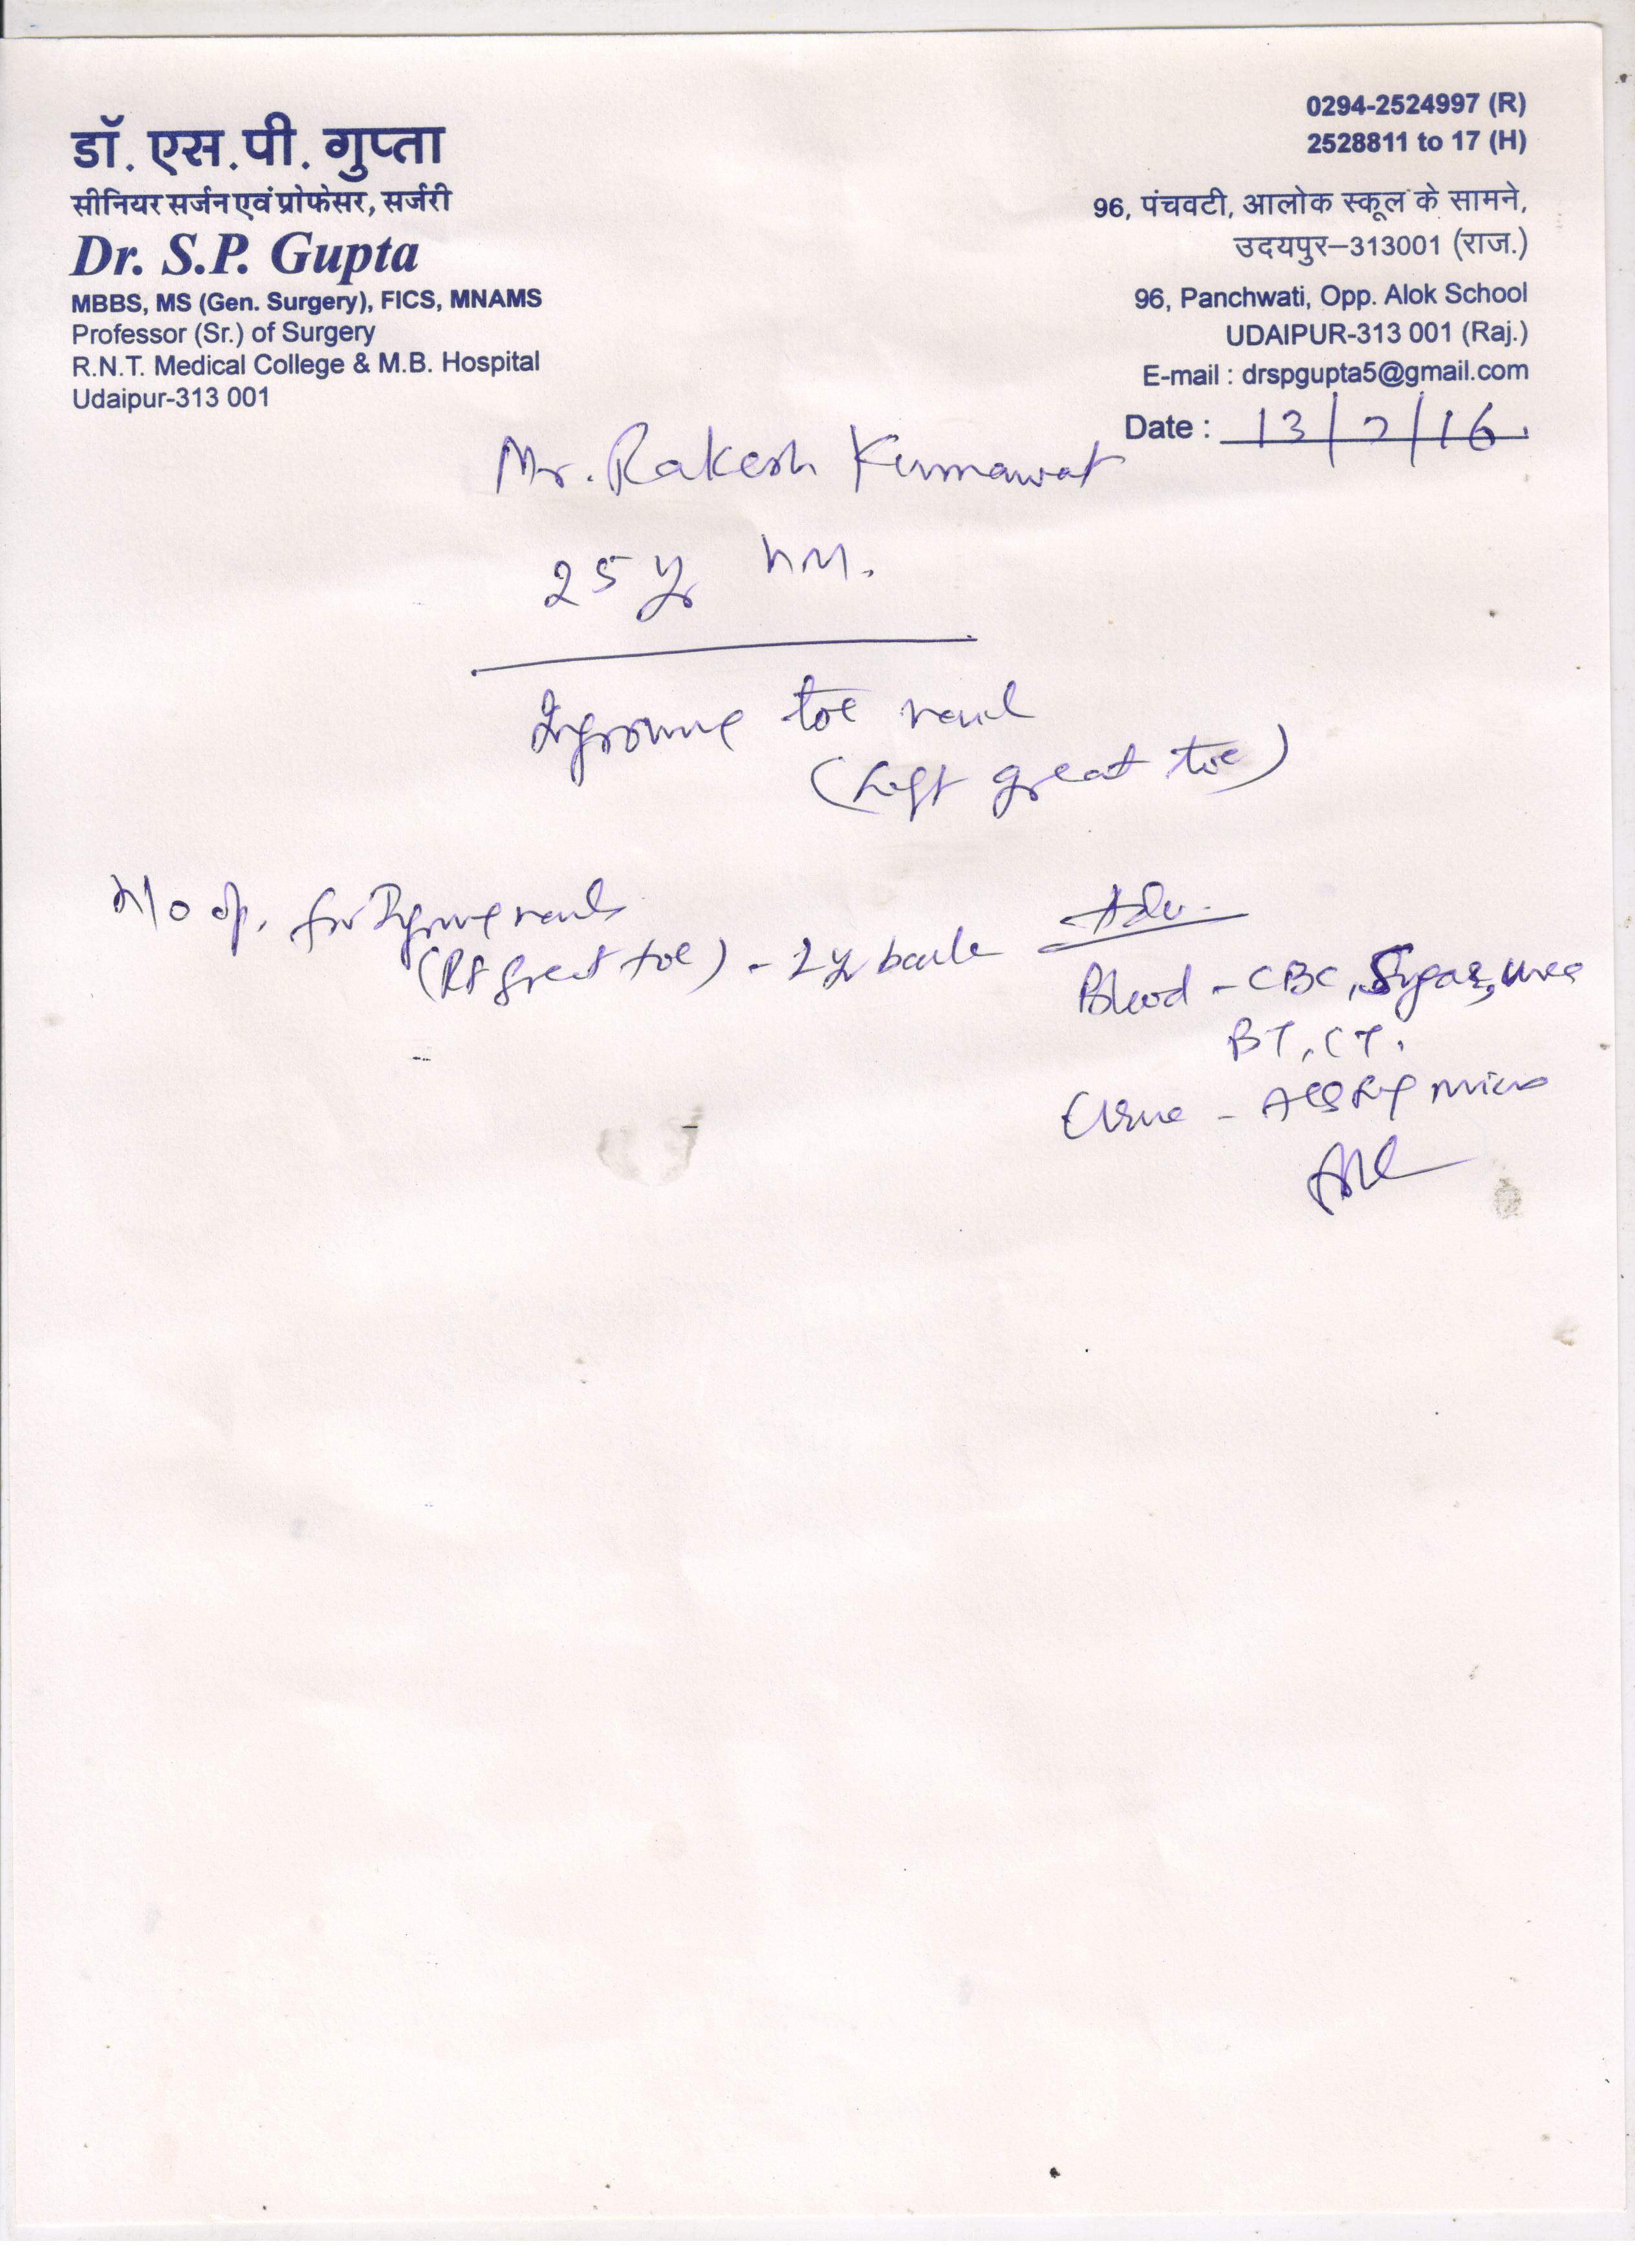 डॉ. एस.पी. गुप्ता
सीनियर सर्जन एवं प्रोफेसर, सर्जरी
Dr. S.P. Gupta
MBBS, MS (Gen. Surgery), FICS, MNAMS
Professor (Sr.) of Surgery
R.N.T. Medical College & M.B. Hospital
Udaipur-313 001
0294-2524997 (R)
2528811 to 17 (H)
96, पंचवटी, आलोक स्कूल के सामने,
उदयपुर–313001 (राज.)
96, Panchwati, Opp. Alok School
UDAIPUR-313 001 (Raj.)
E-mail : drspgupta5@gmail.com
Date : 13/7/16
Mr. Rakesh Kumawat
25 yr
Ingrowing toe nail
(Left great toe)
H/o op. for Ingrowing nail
(Rt great toe) - 2 yr back
Adv.
Blood - CBC, Sugar, urea
BT, CT.
Urine - micro